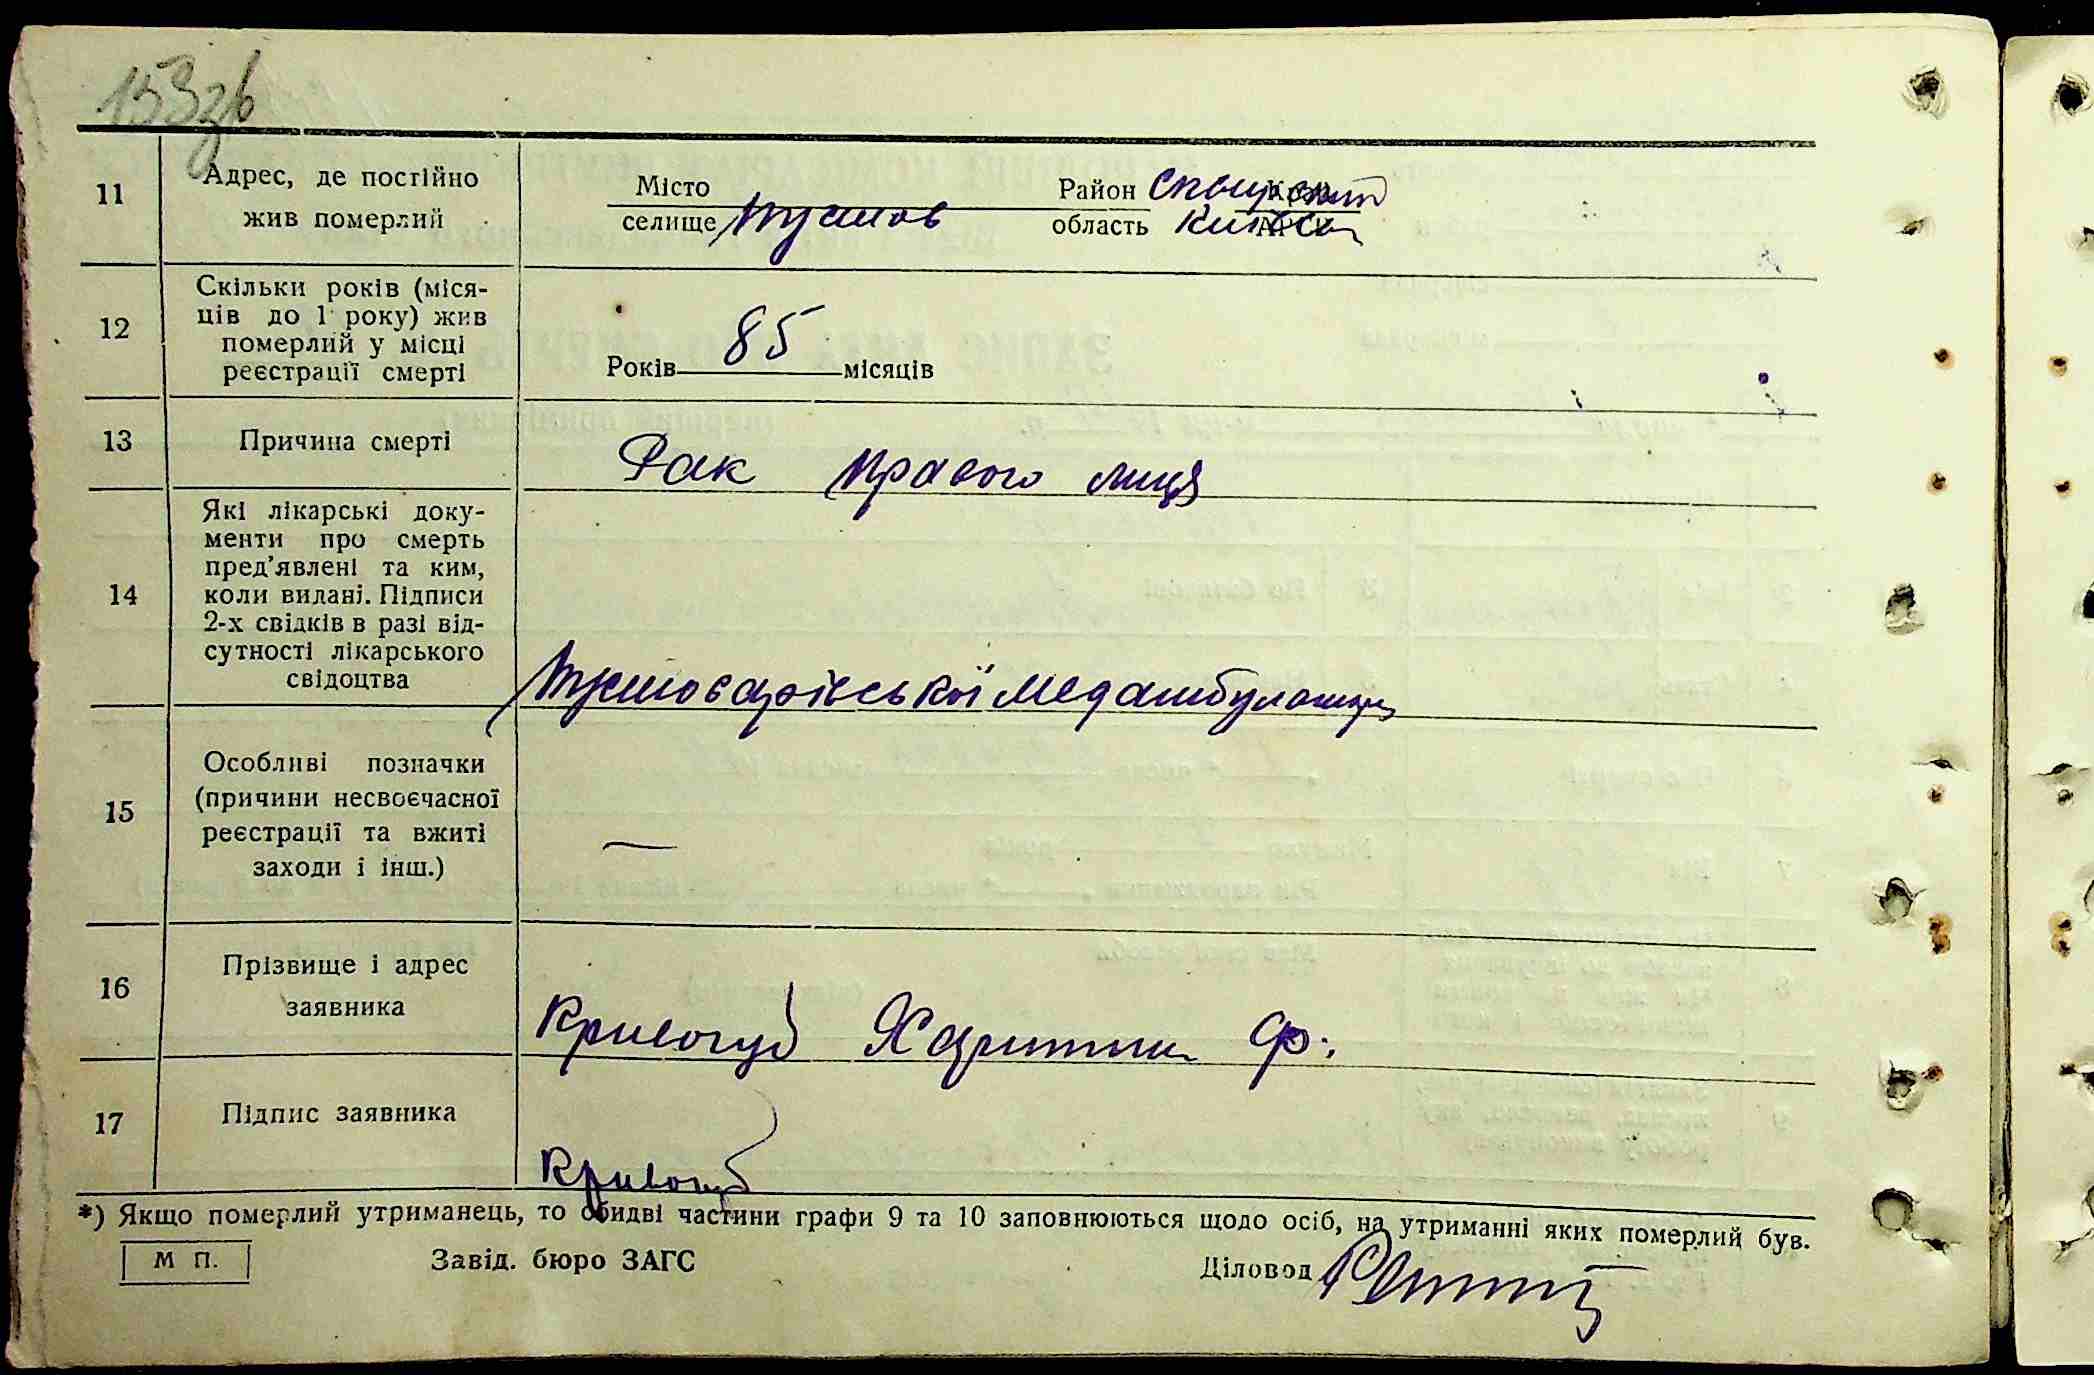 153зв
11 Адрес, де постійно жив померлий
Місто селище Пустов Район Сквирский область Київськ
12 Скільки років (міся-
ців до 1 року) жив
померлий у місці
реєстрації смерті
Років 85 місяців
13 Причина смерті
Рак правого лиця
14 Які лікарські доку-
менти про смерть
пред'явлені та ким,
коли видані. Підписи
2-х свідків в разі від-
сутності лікарського
свідоцтва
медамбулаторії
15 Особливі позначки
(причини несвоєчасної
реєстрації та вжиті
заходи і інш.)
—
16 Прізвище і адрес
заявника
Кривогуб Харитин Ф.
17 Підпис заявника
Кривогуб
*) Якщо померлий утриманець, то обидві частини графи 9 та 10 заповнюються щодо осіб, на утриманні яких померлий був.
М П. Завід. бюро ЗАГС Діловод